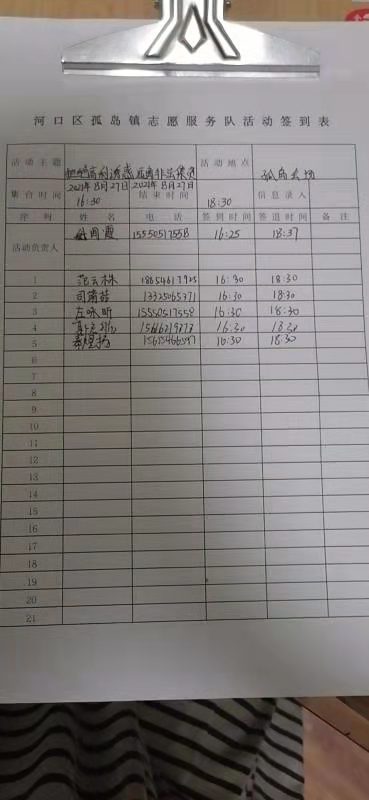 河口区孤岛镇志愿服务队活动签到表
活动主题 拒绝高利诱惑 远离非法集资 活动地点 孤岛广场
集合时间 2021年8月27日 16:30 结束时间 2021年8月27日 18:30 信息录入
序列 姓名 电话 签到时间 签退时间 备注
活动负责人 15550517558 16:25 18:37
1 范云株 18654617925 16:30 18:30
2 司蒲茹 13325065371 16:30 18:30
3 左咏昕 15550517558 16:30 18:30
4 16:30 18:30
5 16:30 18:30
6
7
8
9
10
11
12
13
14
15
16
17
18
19
20
21